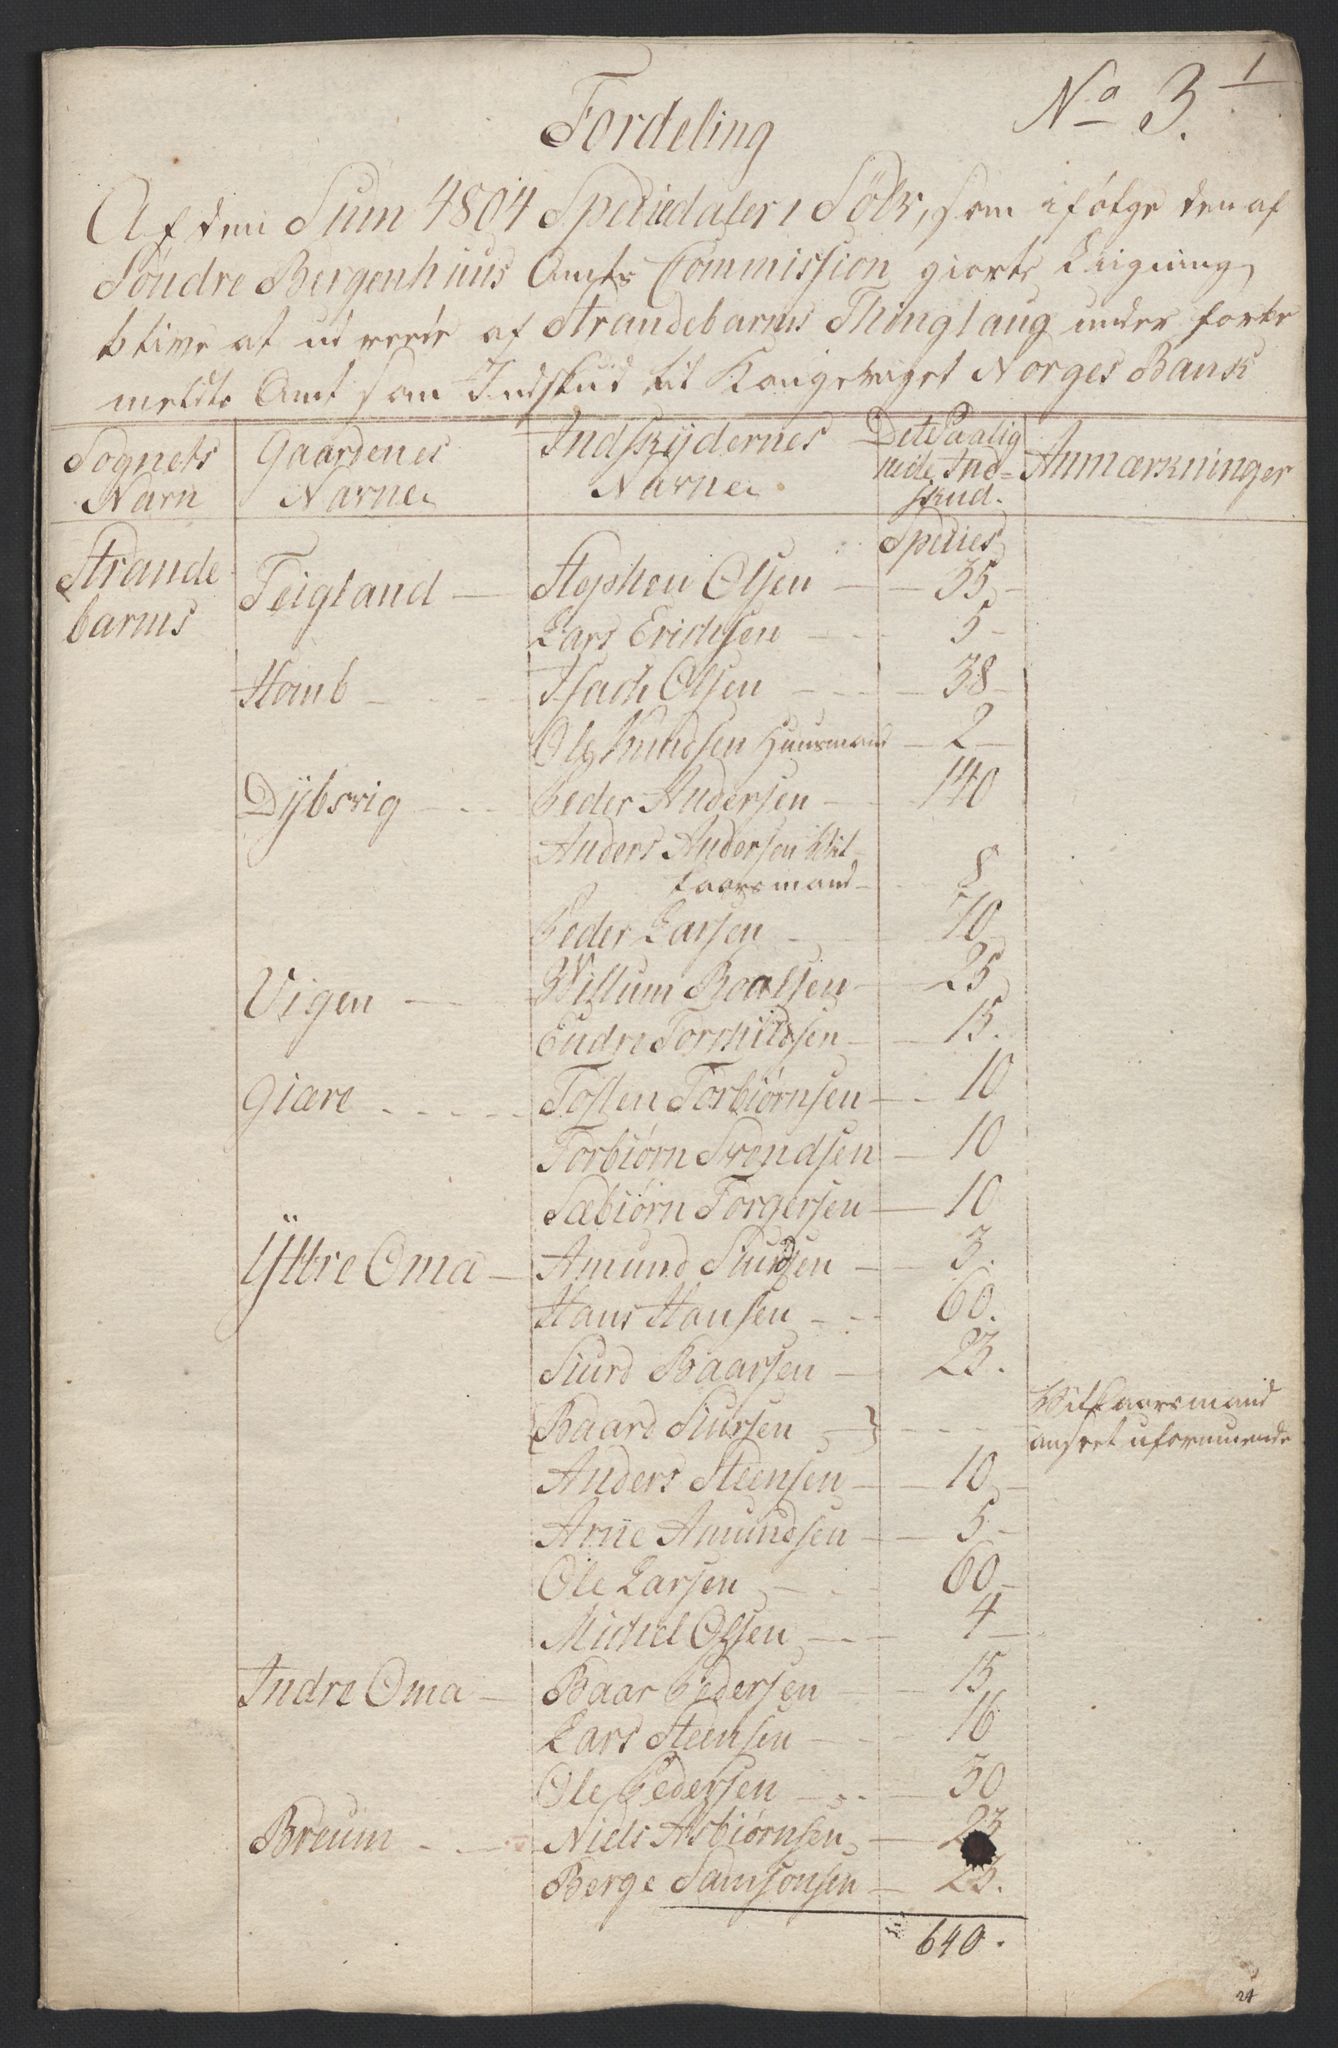 1
No 3.
Fordeling
Af den Sum 4804 Speciedaler i Sölv, som ifølge den af
Söndre Bergenhuus Amts Commission giorte Ligning
blive at udrede af Strandebarms Thinglaug under forbe
meldte Amt som Indskud til Kongeriget Norges Bank
Sognets Navn | Gaardenes Navne | Indskydernes Navne. | Dete Paalignede Indskud. | Anmærkninger
Species
Strandebarms | Teigland — Stephen Olsen — 35
Lars Erichsen — 5
Hamb — Isach Olsen — 38
Ole Knudsen Huusmand — 2
Dybsvig — Peder Andersen — 140
Anders Andersen Vil-
kaarsmand — 8
Peder Larsen — 70
Vigen — Willum Roalsen — 25
Endre Torchildsen — 15.
Giære — Tosten Torbiørnsen — 10
Torbiørn Svendsen — 10
Sæbiørn Torgersen — 10
Yttre Oma — Amund Siursen — 3.
Hans Hansen — 60.
Siurd Baarsen — 23.
Baard Siursen } — Vilkaarsmand
anseet uformuende
Anders Steensen — 10
Arne Amundsen — 5
Ole Larsen — 60
Michel Olsen — 4
Indre Oma — Baar Pedersen — 15
Lars Steensen — 16
Ole Pedersen — 30
Breum — Niels Asbiørnsen — 23
Berge Samsonsen — 23.
640.
24